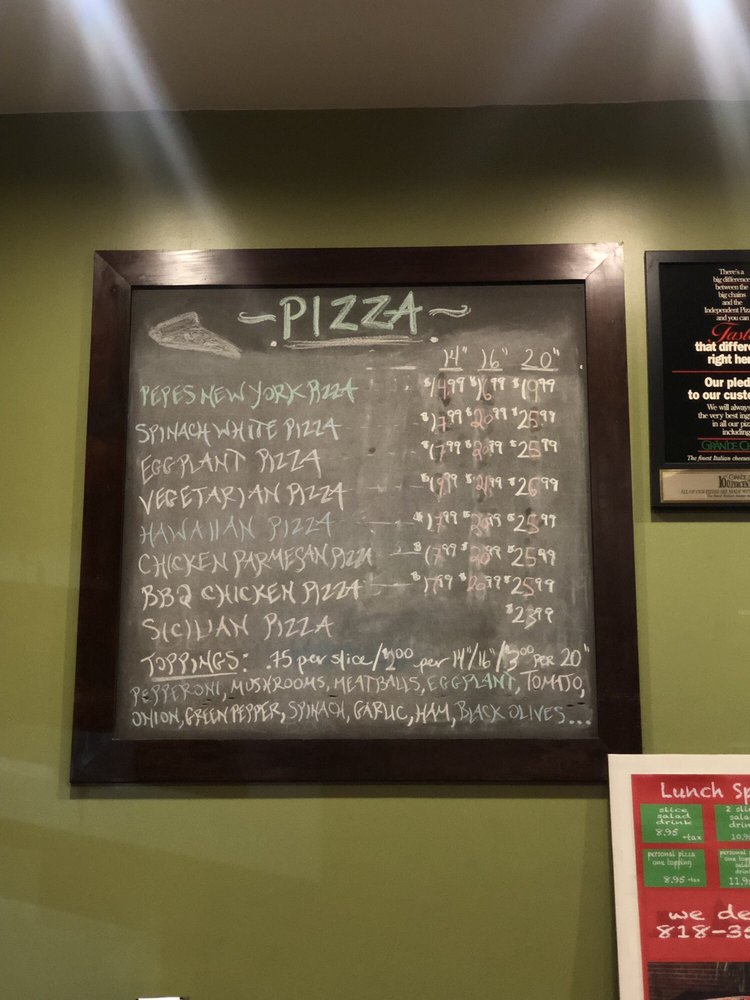 ~PIZZA~
14" 16" 20"
PEPES NEW YORK PIZZA $14.99 $16.99 $19.99
SPINACH WHITE PIZZA $17.99 $20.99 $25.99
EGGPLANT PIZZA $17.99 $20.99 $25.99
VEGETARIAN PIZZA $21.99 $26.99
HAWAIIAN PIZZA $17.99 $20.99 $25.99
CHICKEN PARMESAN PIZZA $17.99 $20.99 $25.99
BBQ CHICKEN PIZZA $17.99 $20.99 $25.99
SICILIAN PIZZA $23.99
TOPPINGS: .75 per slice/$2.00 per 14"/16"/$3.00 PER 20"
PEPPERONI, MUSHROOMS, MEATBALLS, EGGPLANT, TOMATO,
ONION, GREEN PEPPER, SPINACH, GARLIC, HAM, BLACK OLIVES...
There's a
big difference
between the
big chains
and the
Independent
and you can
that
right
Our
to our
We will
the very best
in all our
including
GRANDE
The finest Italian
Lunch
slice
salad
drink
8.95 +tax
2
personal pizza
one topping
8.95 +tax
we
818-